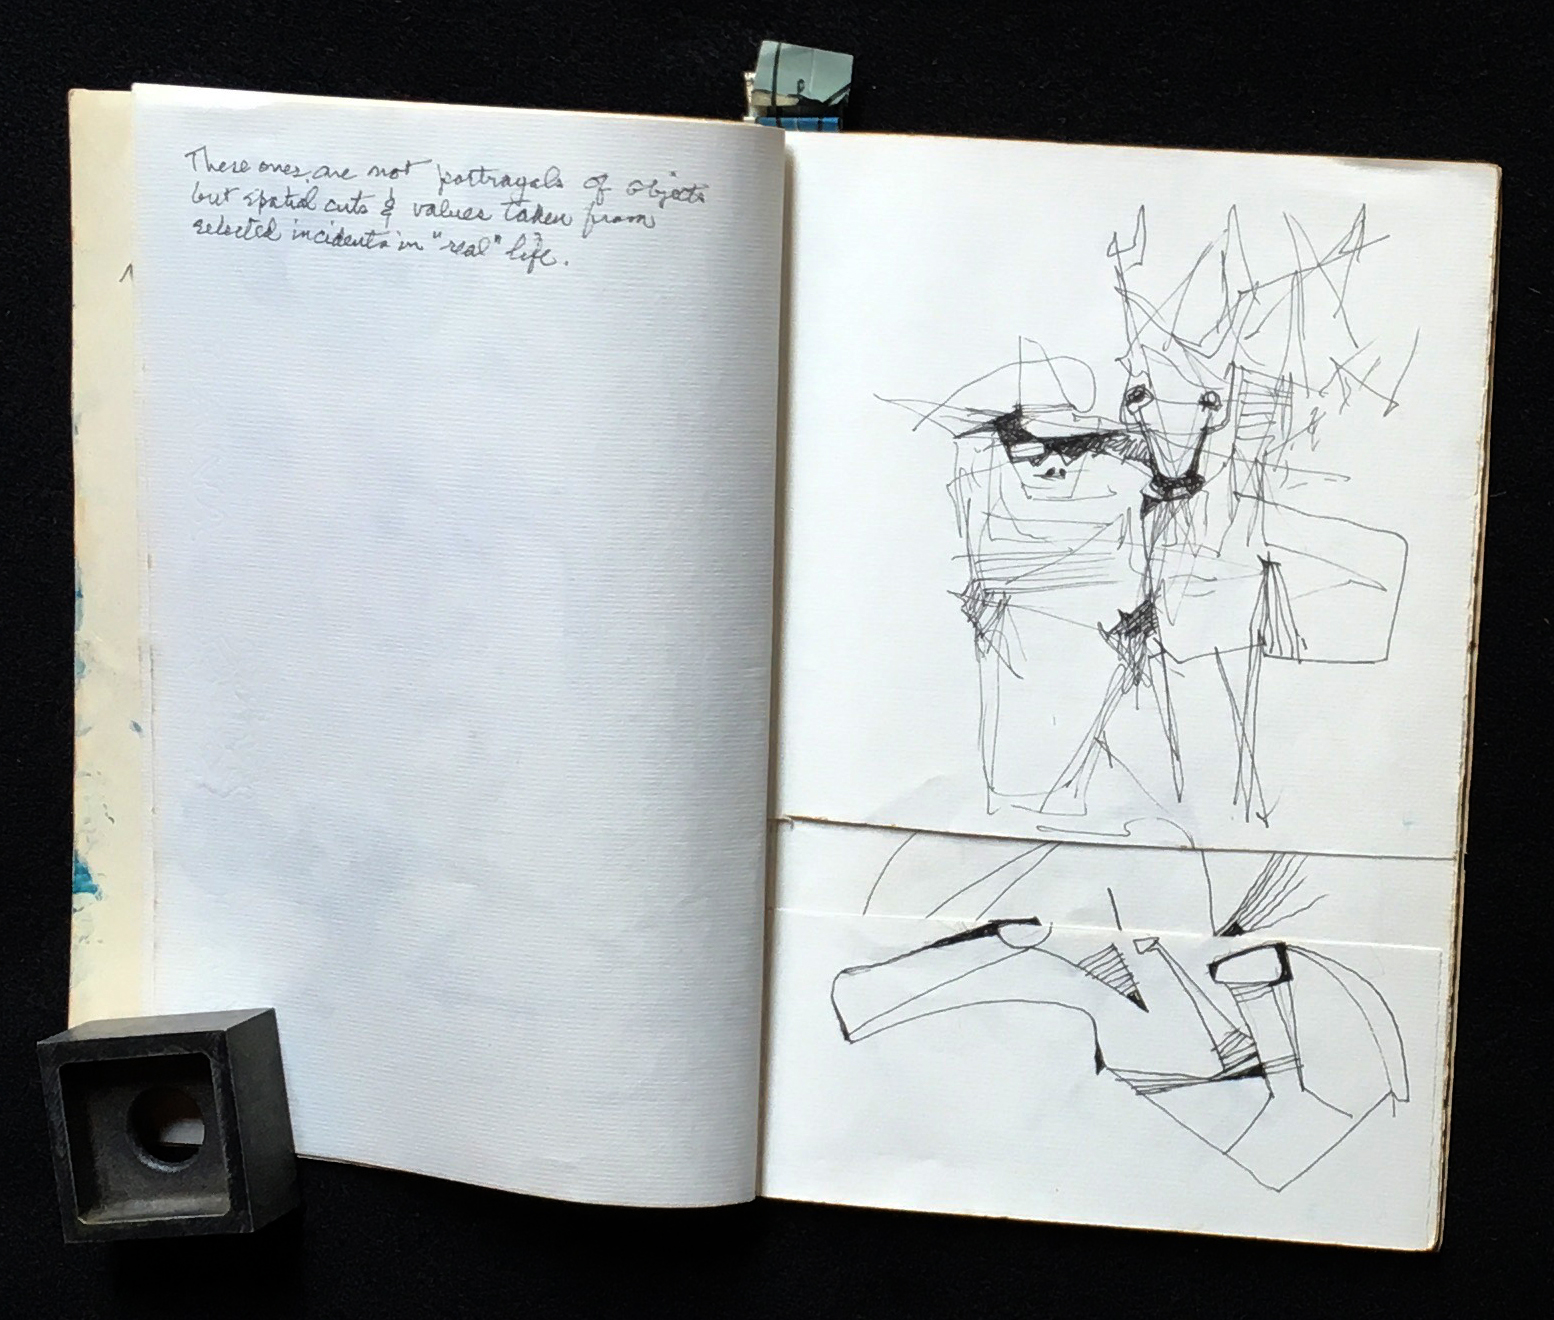 These ones are not portrayals of objects
but spatial cuts & values taken from
selected incidents in "real" life.